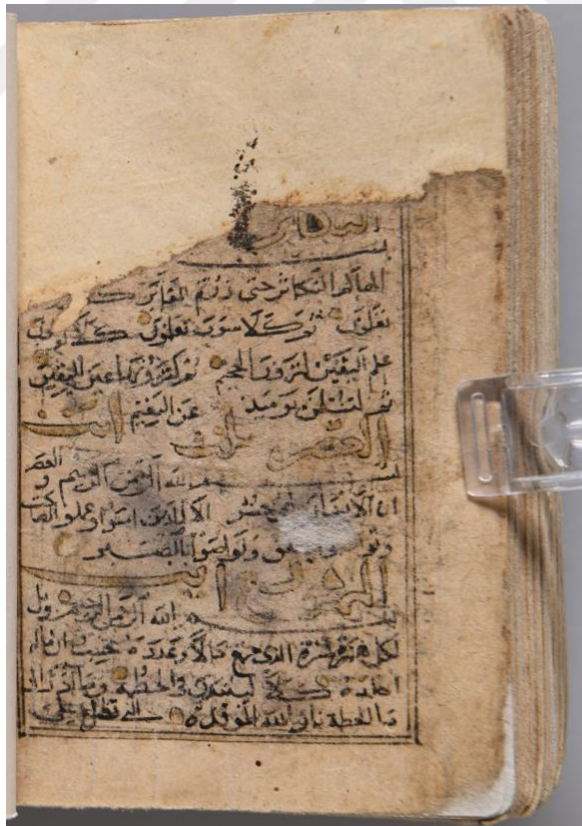 التكاثر
الهاكم التكاثر حتى زرتم المقابر كلا
تعلمون ثم كلا سوف تعلمون كلا لو
علم اليقين لترون الجحيم ثم لترونها عين اليقين
ثم لتسئلن يومئذ عن النعيم
العصر
بسم الله الرحمن الرحيم والعصر
ان الانسان لفي خسر الا الذين امنوا وعملوا
وتواصوا وتواصوا بالصبر
بسم الله الرحمن الرحيم ويل
لكل همزة لمزة الذي جمع مالا وعدده يحسب ان ماله
اخلده كلا لينبذن في الحطمة وما ادراك
ما الحطمة نار الله الموقدة التي تطلع على